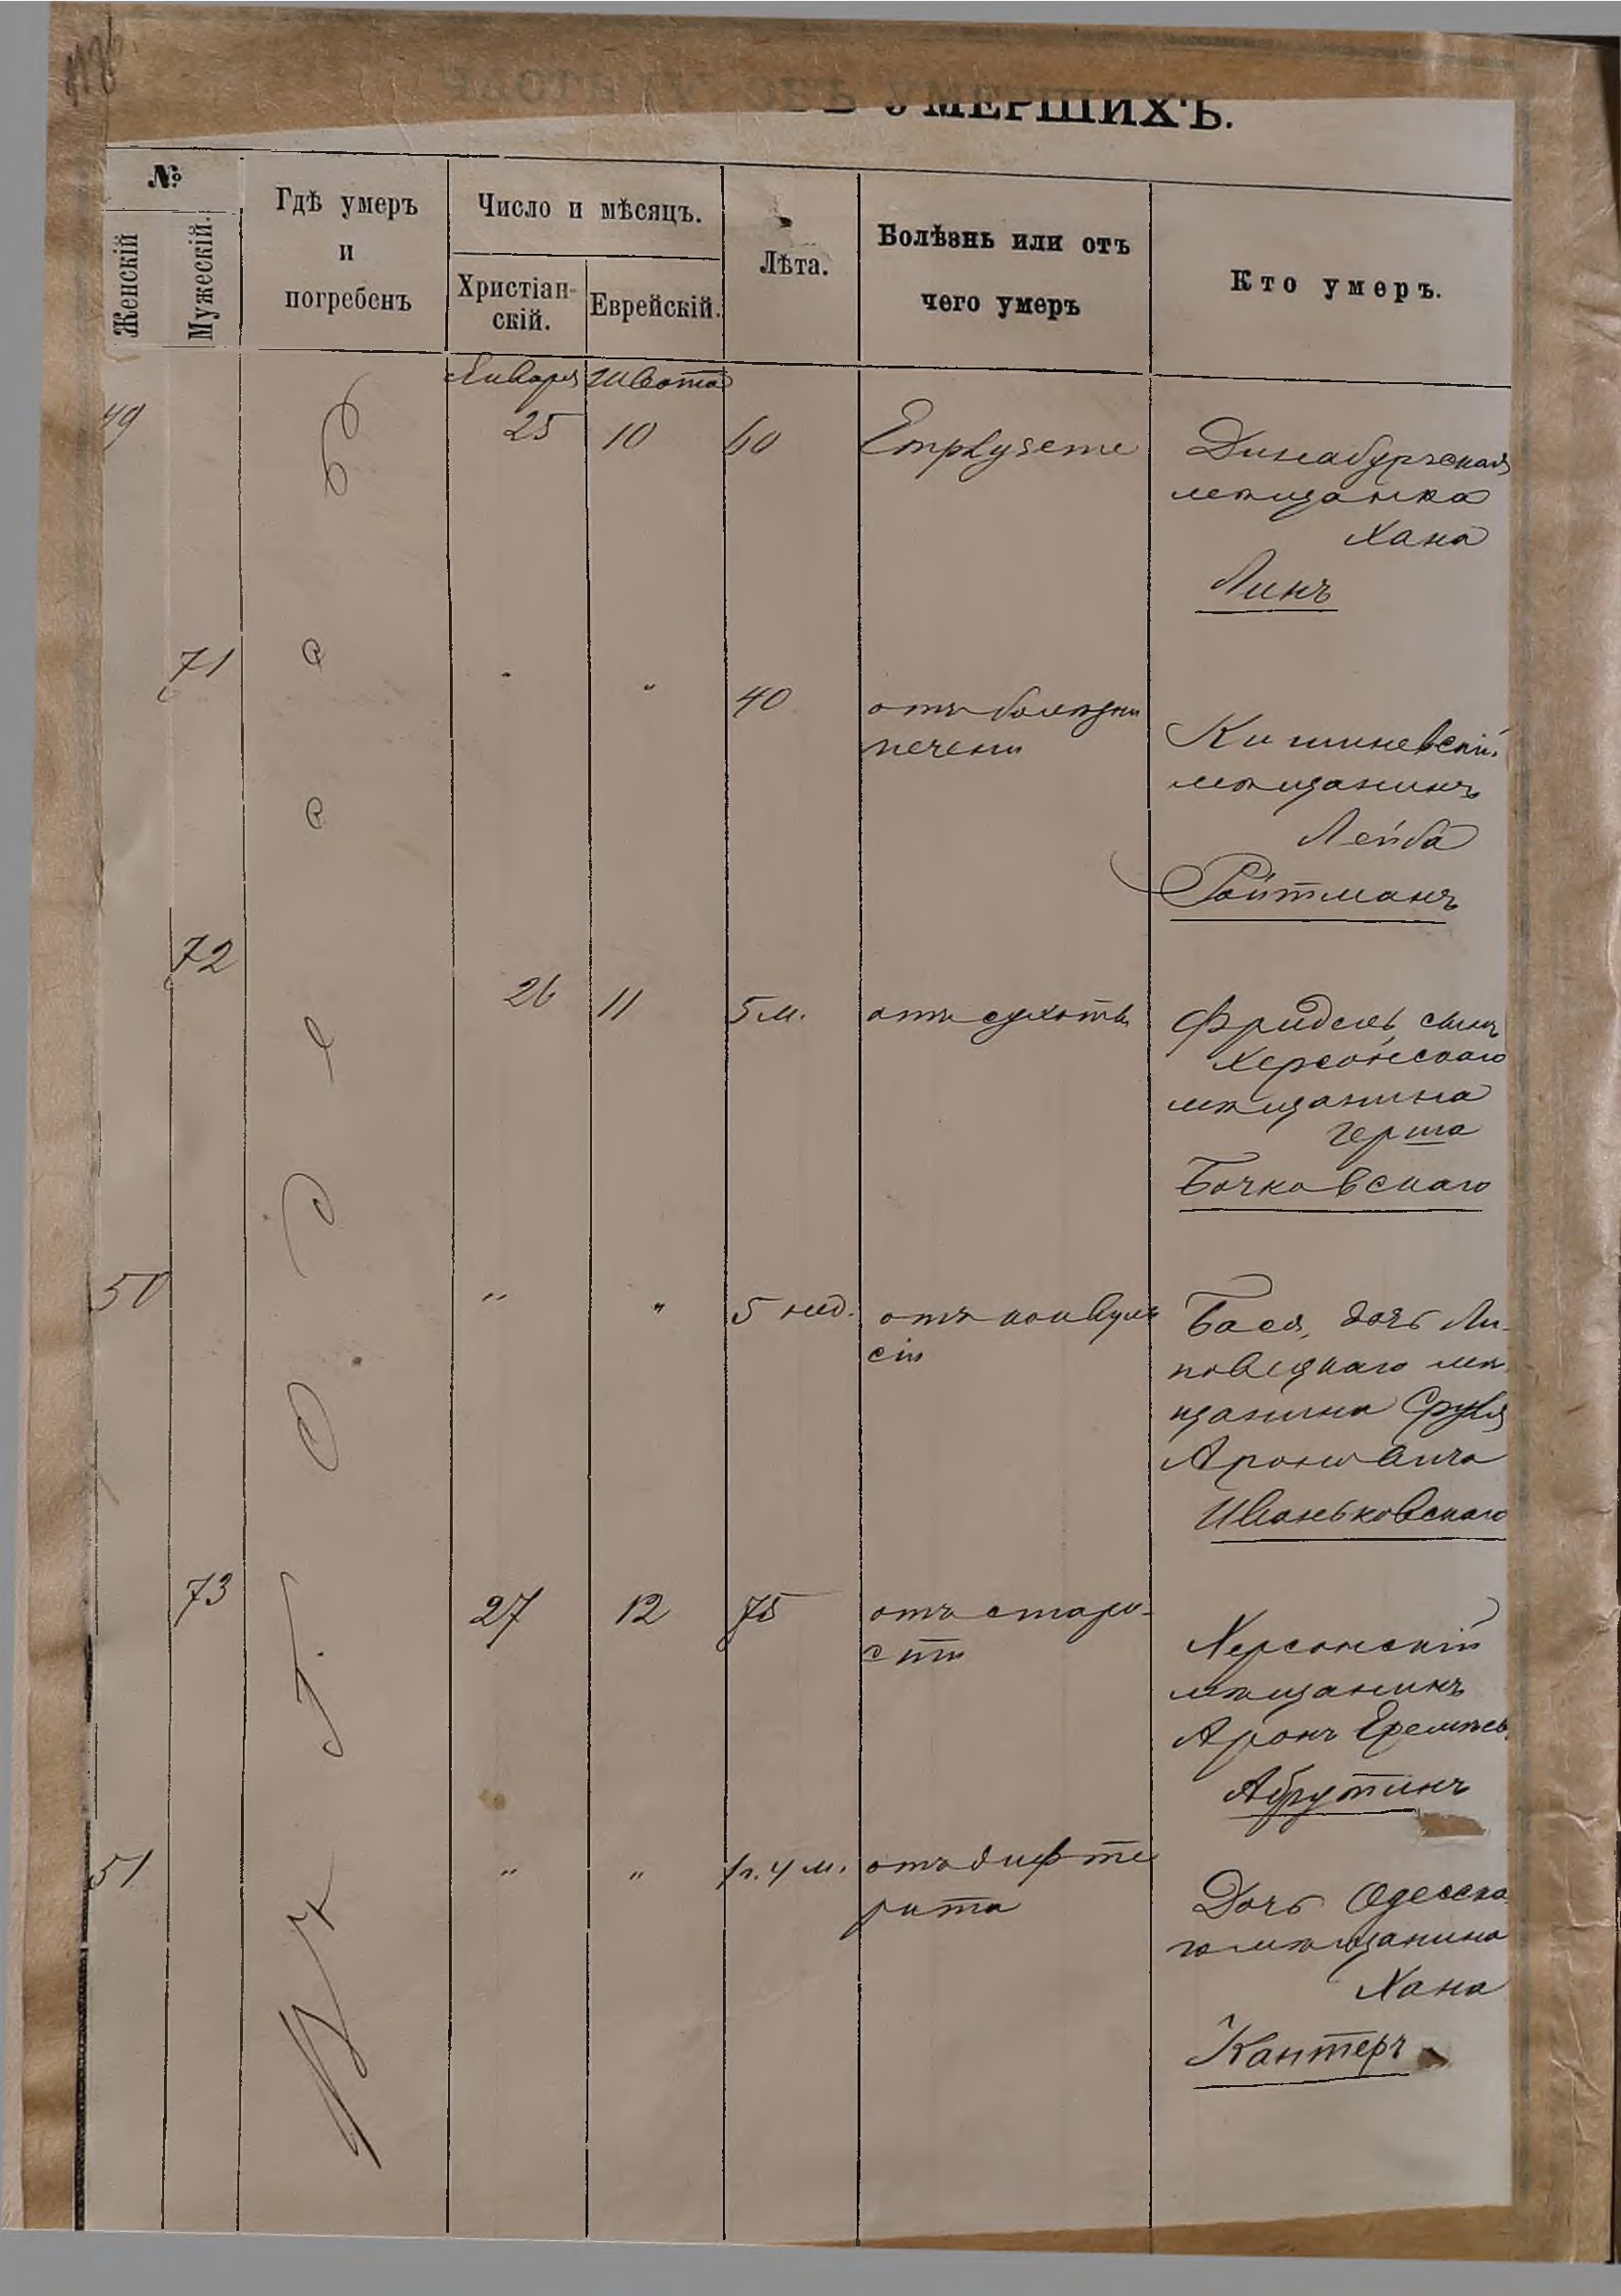 УМЕРШИХЪ.
№
Женскій
Мужескій.
Гдѣ умеръ
и
погребенъ
Число и мѣсяцъ.
Христіан-
скій.
Еврейскій.
Лѣта.
Болѣзнь или отъ
чего умеръ
Кто умеръ.
Января Швота
49 25 10 60 Emphyseme Динабургская
мѣщанка
Хана
Линъ
71 " " 40 отъ болѣзни
печени
Кишиневскій
мѣщанинъ
Лейба
Ройтманъ
72 26 11 5 м. отъ сухоты Фридель, сынъ
Херсонскаго
мѣщанина
Герша
Бочковскаго
50 " " 5 нед. отъ конвуль
сіи
Бася, дочь Ли-
повецкаго мѣ
щанина Сруля
Ароновича
Иваньковскаго
73 27 12 75 отъ старо-
сти
Херсонскій
мѣщанинъ
Аронъ Еремѣев
Абрутинъ
51 " " 1 г. 4 м. отъ дифте
рита
Дочь Одесска
го мѣщанина
Хана
Канторъ
въ Одессѣ